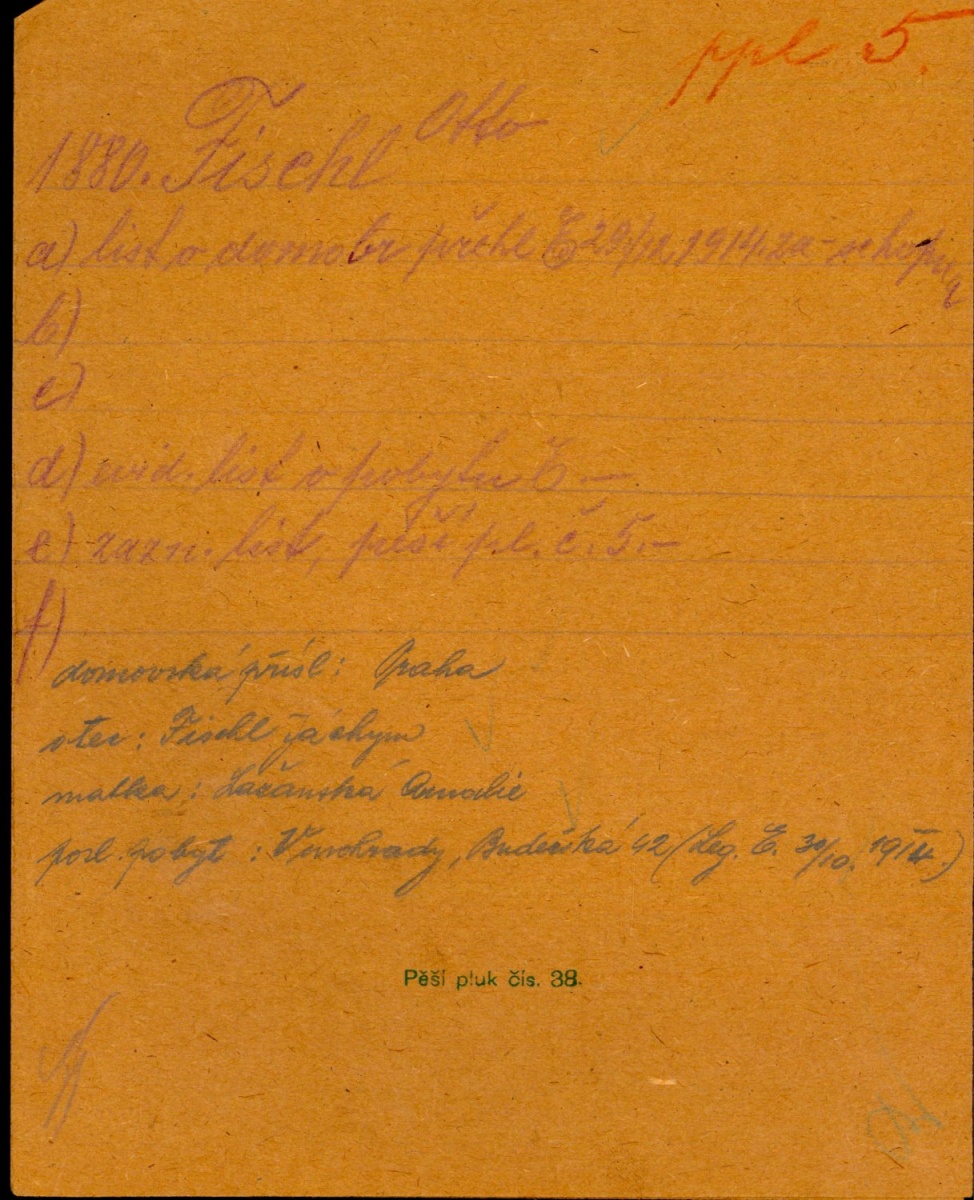 ppl 5.
1880. Fischl Otto
a) list o domobr přehl. Č 1914. za- schopna
b)
c)
d) evid. list o pobytu Č -
e) zazn. list, pěší pl. č. 5.-
f)
domovská přísl: Praha
otec: Fischl Jáchym
matka: Lažanská Amalie
posl. pobyt: Vinohrady, Budečská 42 (Leg. Č. 30/10. 1914.)
Pěší pluk čís. 38.